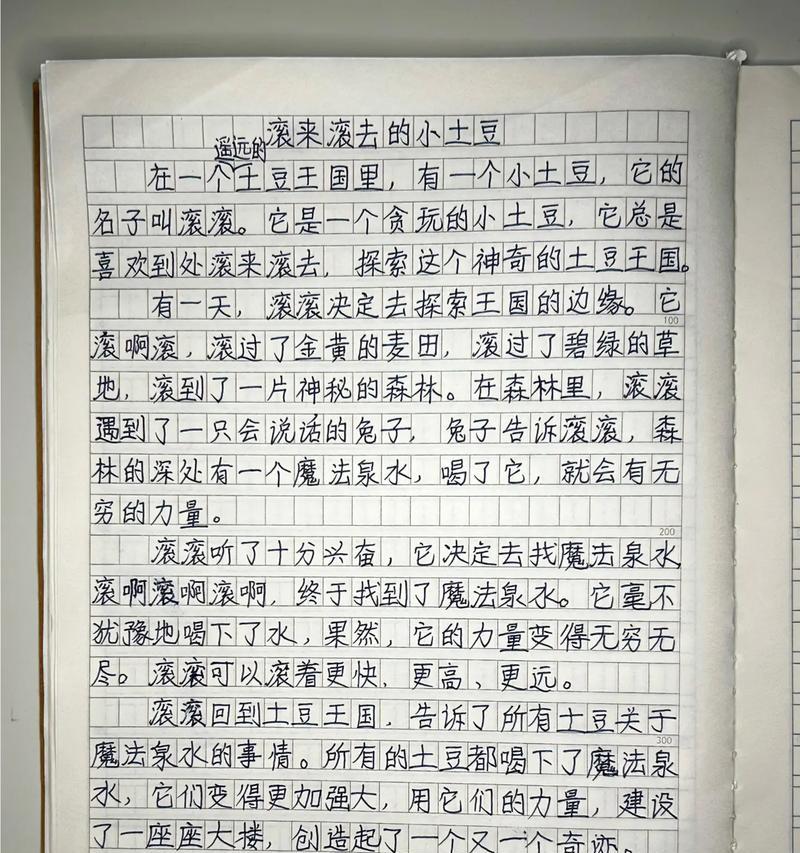 滚来滚去的小土豆
遥远的
在一个土豆王国里，有一个小土豆，它的
名子叫滚滚。它是一个贪玩的小土豆，它总是
喜欢到处滚来滚去，探索这个神奇的土豆王国。
有一天，滚滚决定去探索王国的边缘。它
100
滚啊滚，滚过了金黄的麦田，滚过了碧绿的草
地，滚到了一片神秘的森林。在森林里，滚滚
遇到了一只会说话的兔子，兔子告诉滚滚，森
林的深处有一个魔法泉水，喝了它，就会有无
穷的力量。
200
滚滚听了十分兴奋，它决定去找魔法泉水，
滚啊滚啊滚啊，终于找到了魔法泉水。它毫不
犹豫地喝下了水，果然，它的力量变得无穷无
尽。滚滚可以滚着更快，更高、更远。
滚滚回到土豆王国，告诉了所有土豆关于
300
魔法泉水的事情。所有的土豆都喝下了魔法泉
水，它们变得更加强大，用它们的力量，建设
了一座座大搂，创造起了一个又一个奇迹。